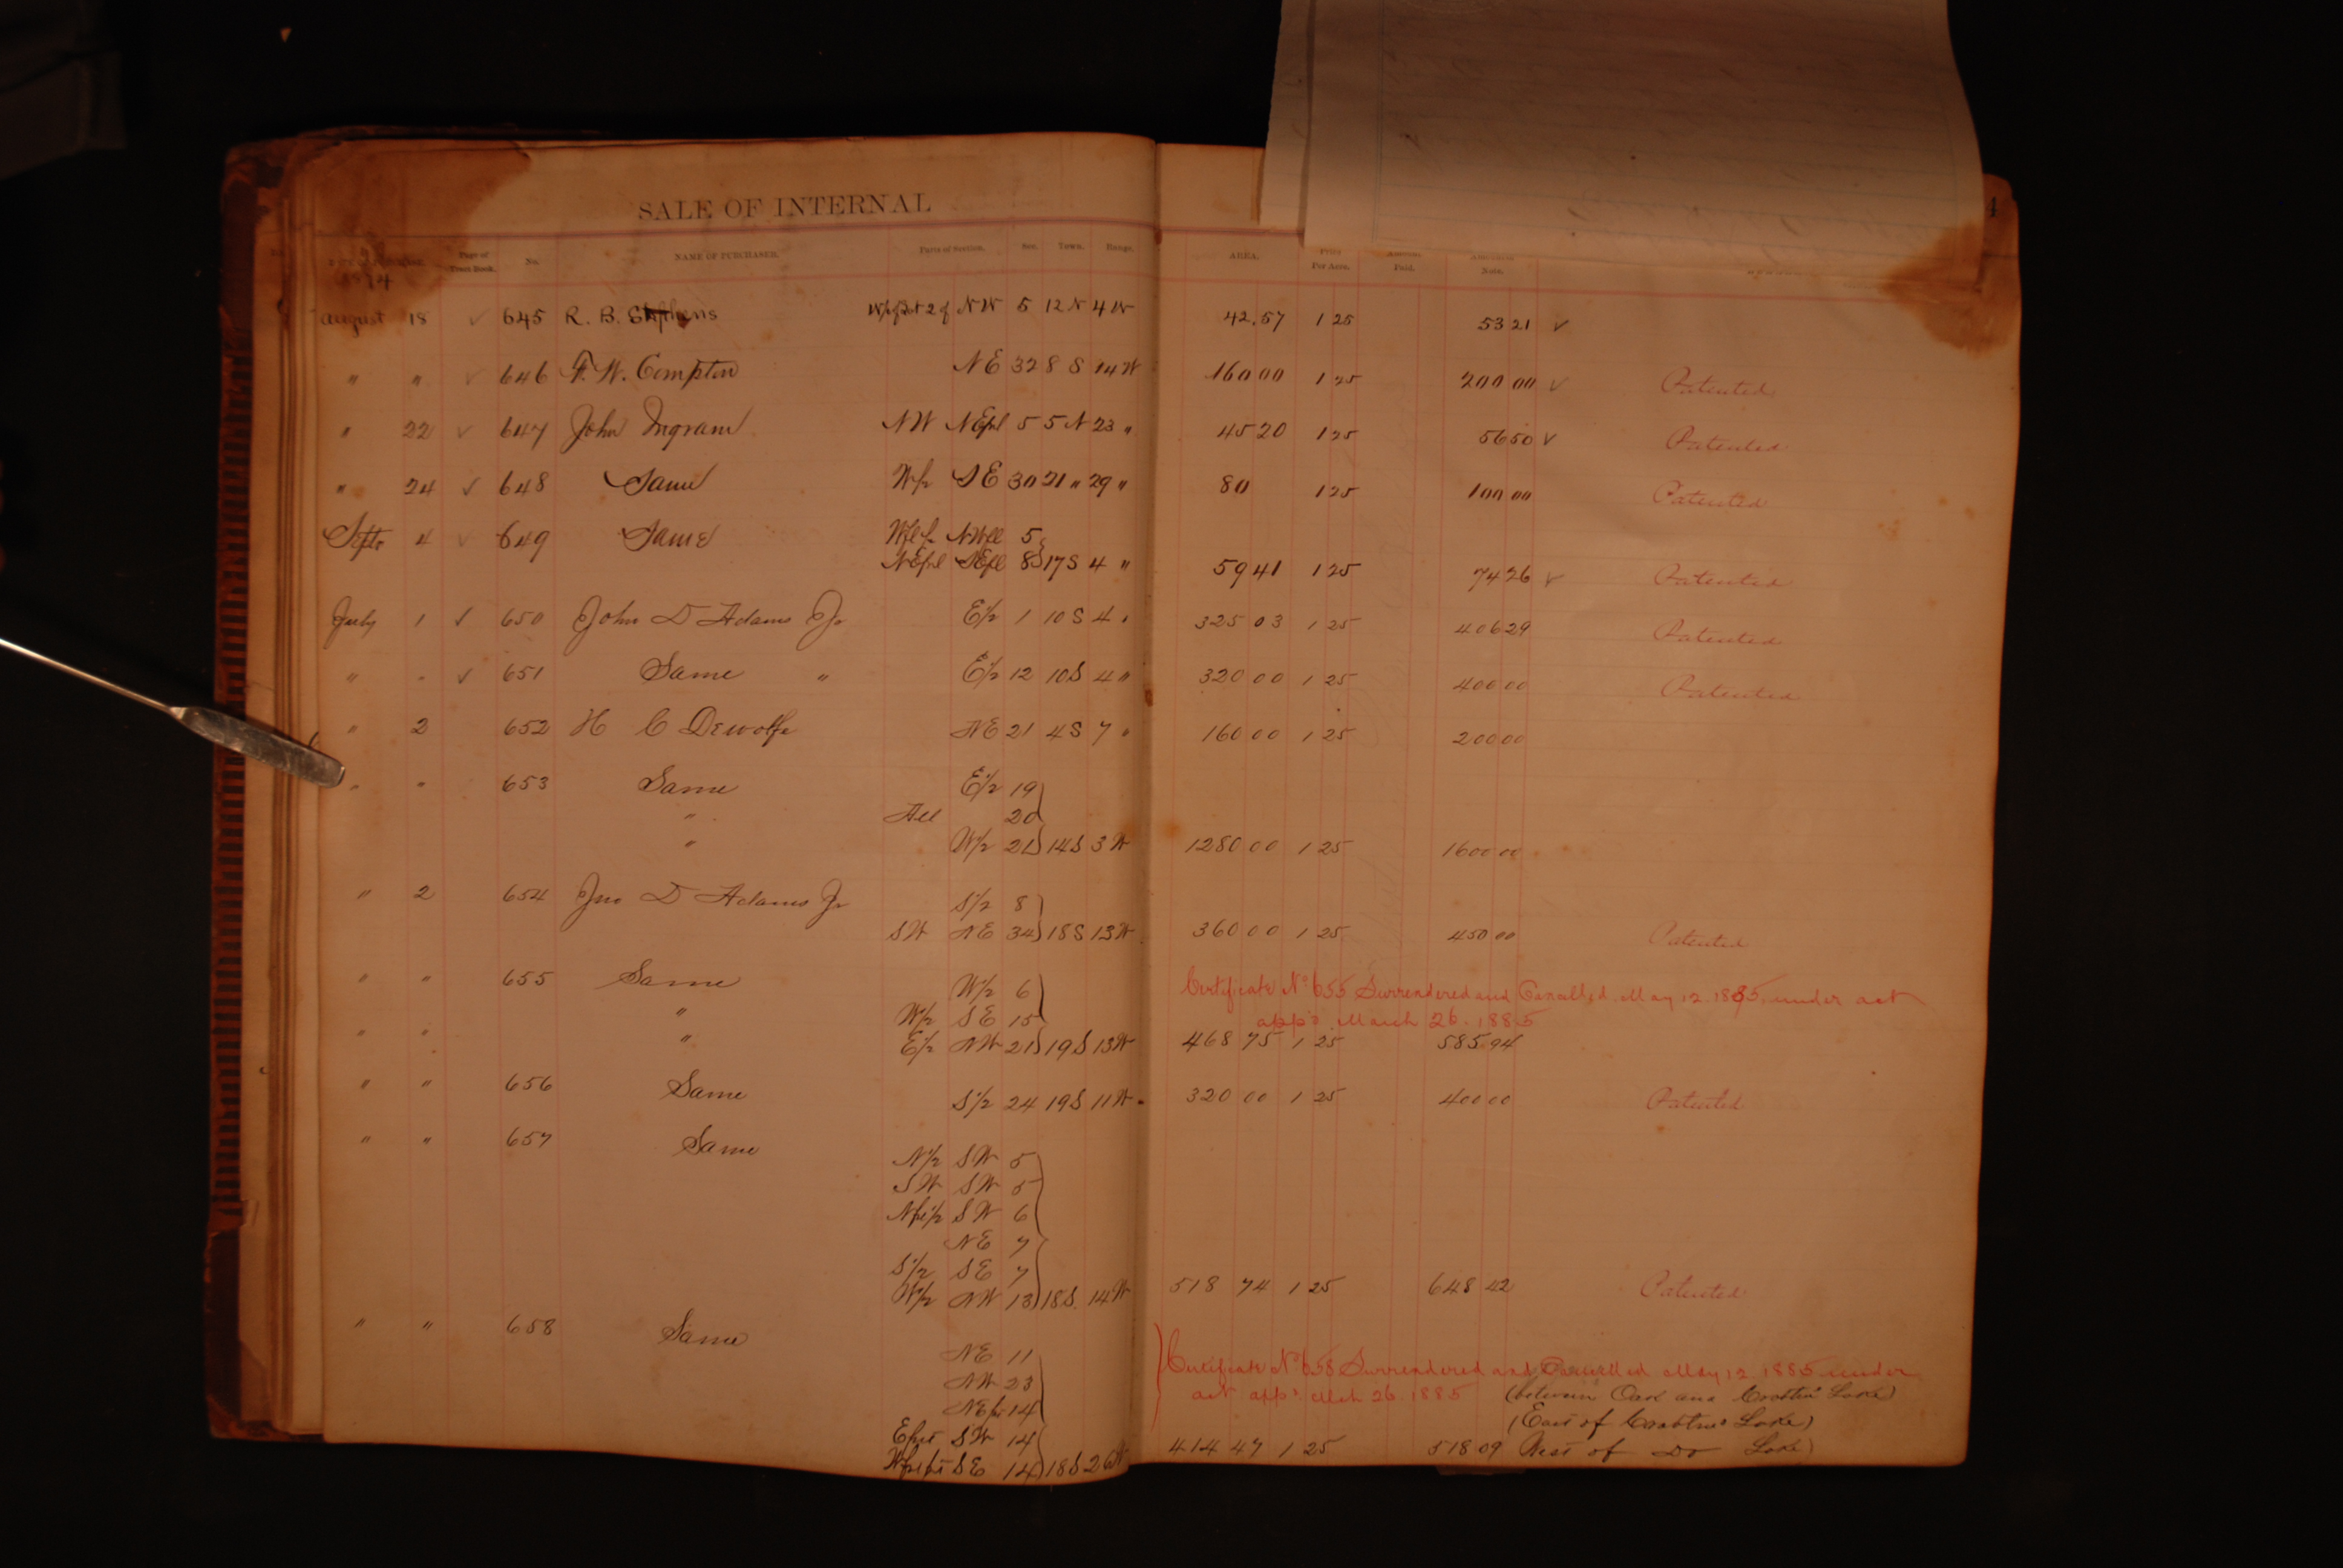 SALE OF INTERNAL
Page of Tract Book. No. NAME OF PURCHASER. Parts of Section. Sec. Town. Range. AREA. Price Per Acre. Amount Paid. Amount Note.
1874
August 18 ✓ 645 R. B. Stephens NW 5 12 N 4 W 42.57 1 25 53 21 ✓
" " ✓ 646 F. W. Compton NE 32 8 S 14 W 160 00 1 25 200 00 ✓ Patented
" 22 ✓ 647 John Ingram NW NEfrl 5 5 N 23 " 45 20 1 25 56 50 ✓ Patented
" 24 ✓ 648 Same W½ SE 30 21 " 29 " 80 1 25 100 00 Patented
Sept 4 ✓ 649 Same NWfrl 5
NEfrl SEfrl 8 17 S 4 " 59 41 1 25 74 26 ✓ Patented
July 1 ✓ 650 John D Adams Jr E½ 1 10 S 4 " 325 03 1 25 406 29 Patented
" " ✓ 651 Same " E½ 12 10 S 4 " 320 00 1 25 400 00 Patented
" 2 652 H C Dewolfe NE 21 4 S 7 " 160 00 1 25 200 00
" " 653 Same E½ 19
" All 20
" W½ 21 14 S 3 W 1280 00 1 25 1600 00
" 2 654 Jno D Adams Jr S½ 8
SW NE 34 18 S 13 W 360 00 1 25 450 00 Patented
" " 655 Same W½ 6 Certificate No 655 Surrendered and Cancelled May 12. 1885, under act
" W½ SE 15 app'd March 26. 1885
" " " E½ NW 21 19 S 13 W 468 75 1 25 585 94
" " 656 Same S½ 24 19 S 11 W 320 00 1 25 400 00 Patented
" " 657 Same
N½ SW 5
SW SW 5
Nfrl½ SW 6
NE 7
S½ SE 7
W½ NW 13 18 S. 14 W 518 74 1 25 648 42 Patented
" " 658 Same
NE 11 Certificate No 658 Surrendered and Cancelled May 12. 1885 under
NW 23 act app'd Mch 26. 1885 (between Oak and Crabtree Lake)
NE 14 (East of Crabtree Lake)
SW 14
SE 14 18 S 26 W 414 47 1 25 518 09 West of Do Lake)